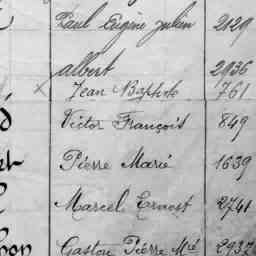 Paul Eugène Julien 2129
albert 2936
x Jean Baptiste 761
Victor François 849
Pierre Marie 1639
Marcel Ernest 2741
Gaston Pierre Mie 2937